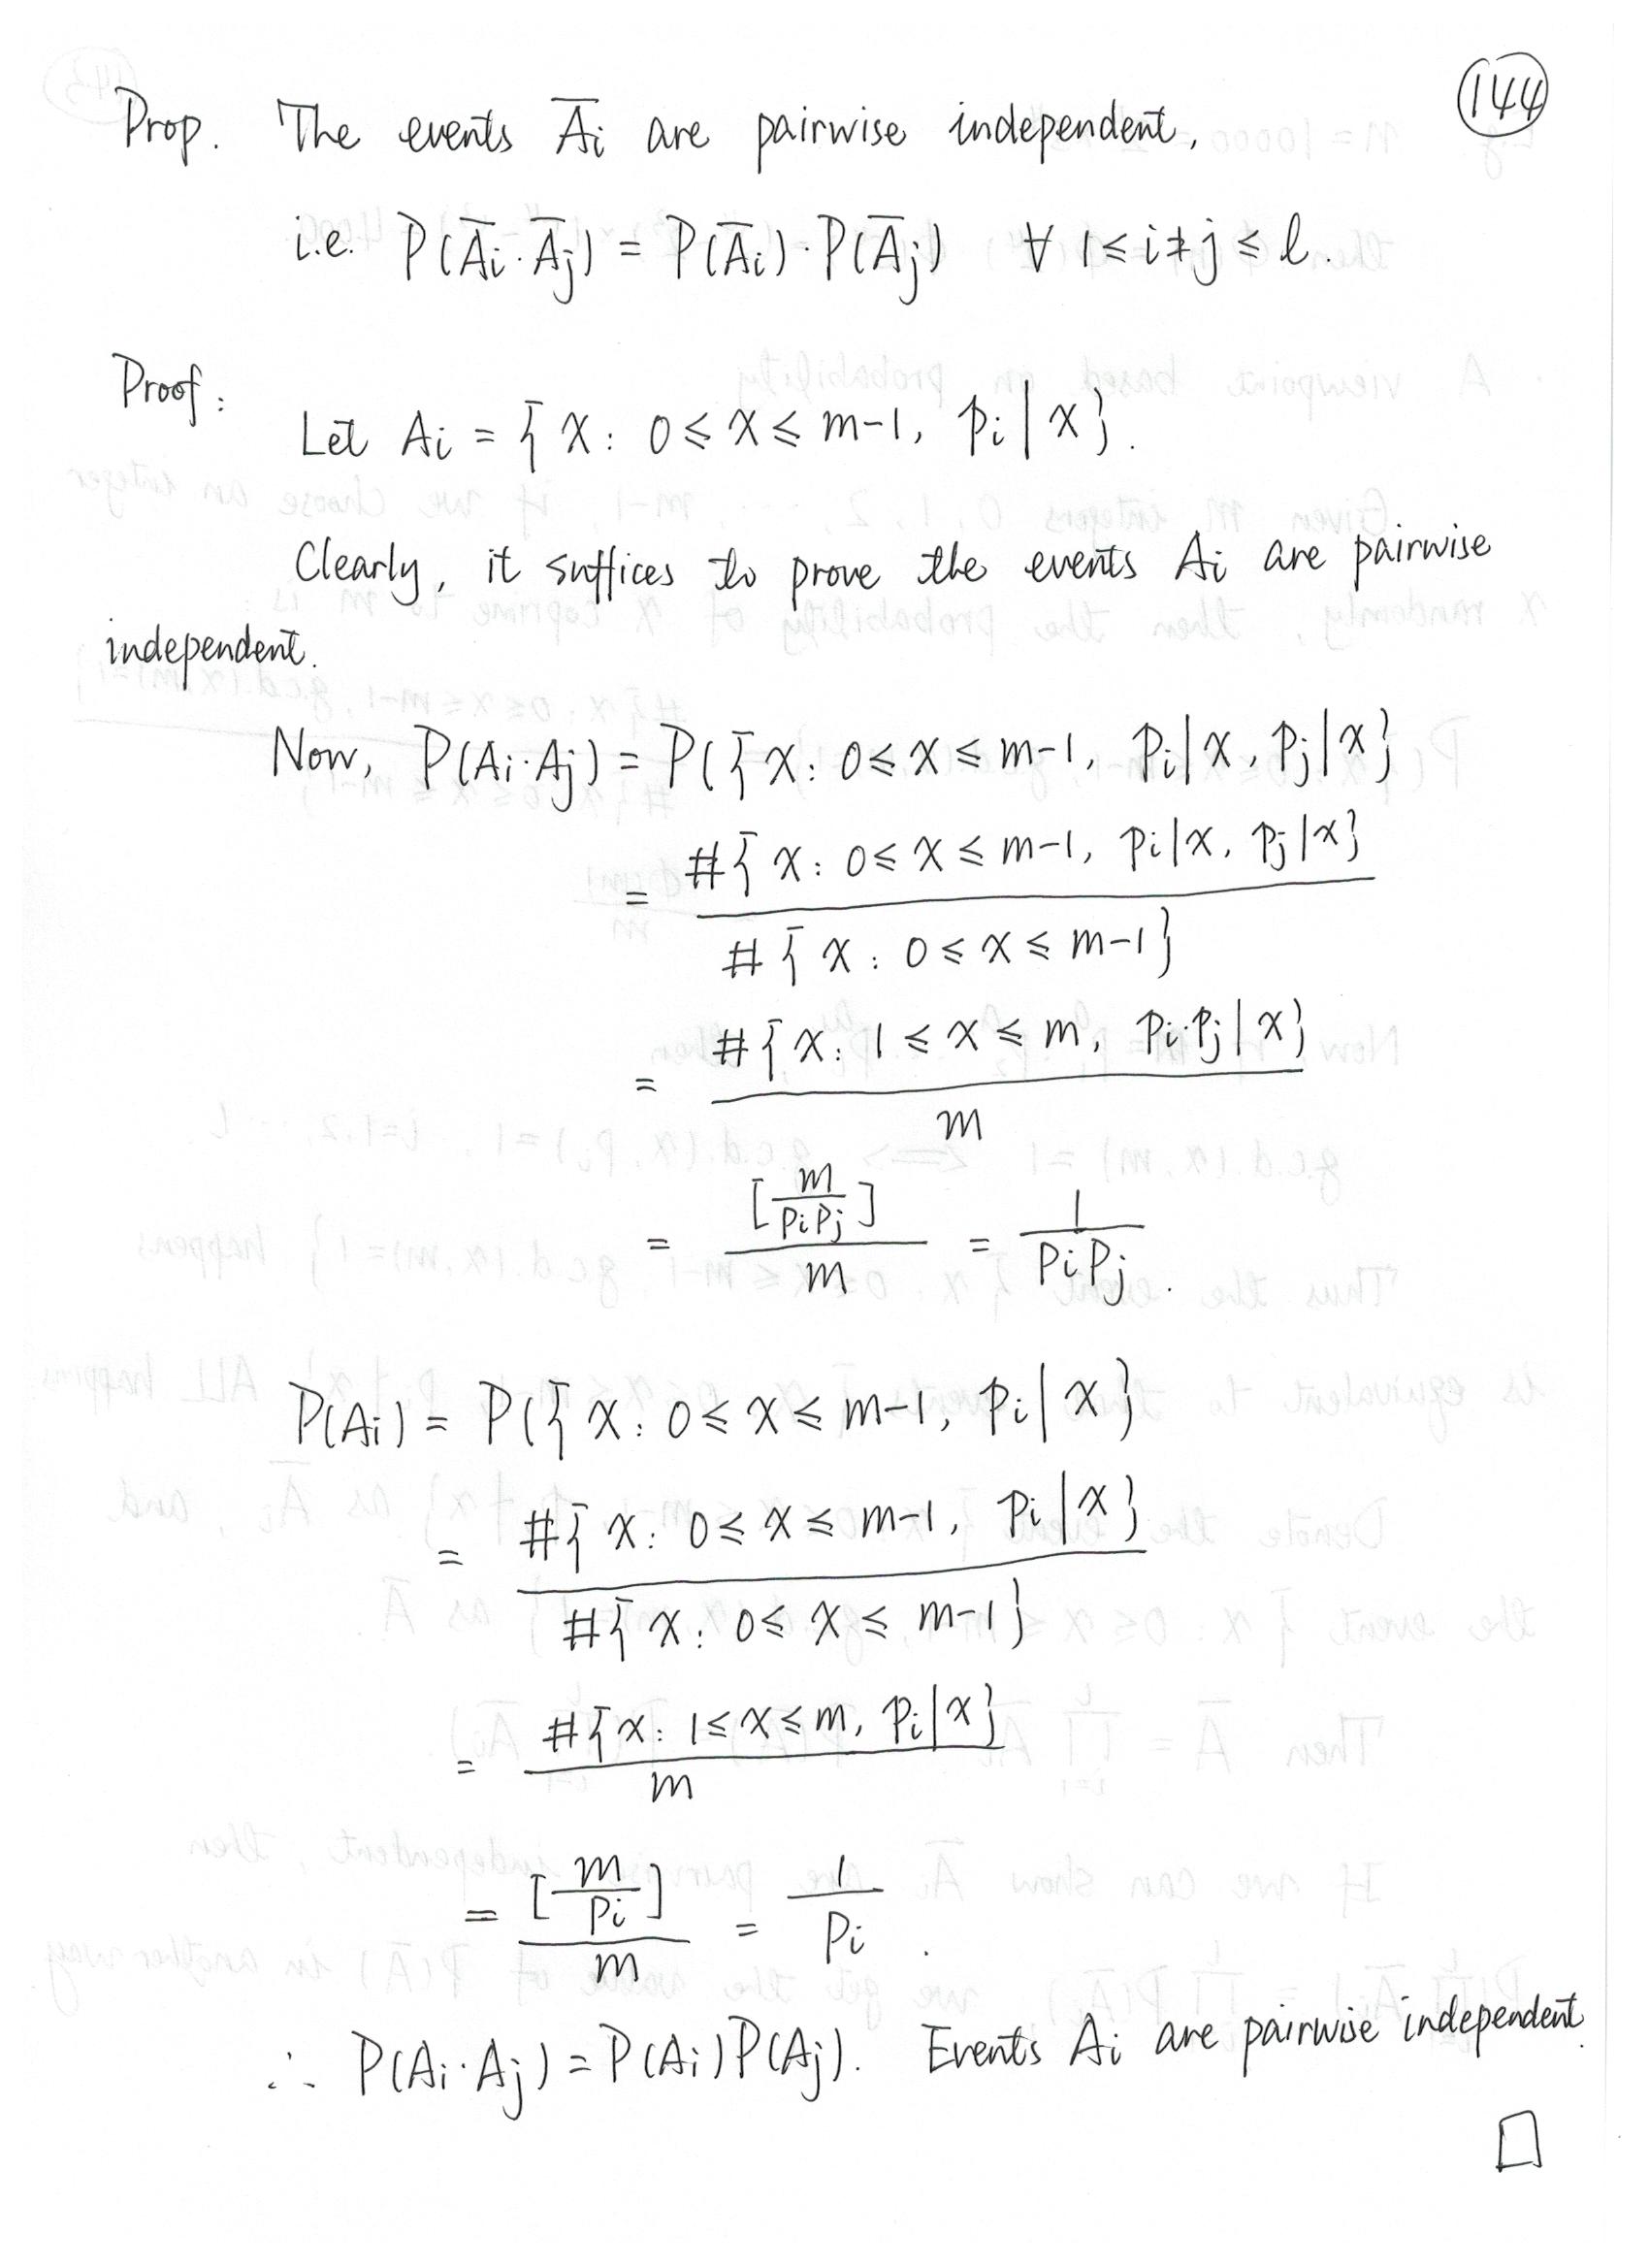 144
Prop. The events Āi are pairwise independent,
i.e. P(Āi·Āj) = P(Āi)·P(Āj) ∀ 1≤i≠j≤l.
Proof:
Let Ai = {x: 0≤x≤m-1, pi|x}.
Clearly, it suffices to prove the events Ai are pairwise
independent.
Now, P(Ai·Aj) = P({x: 0≤x≤m-1, pi|x, pj|x}
= #{x: 0≤x≤m-1, pi|x, pj|x} / #{x: 0≤x≤m-1}
= #{x: 1≤x≤m, pi·pj|x} / m
= [m/pipj] / m = 1/pipj.
P(Ai) = P({x: 0≤x≤m-1, pi|x}
= #{x: 0≤x≤m-1, pi|x} / #{x: 0≤x≤m-1}
= #{x: 1≤x≤m, pi|x} / m
= [m/pi] / m = 1/pi.
∴ P(Ai·Aj) = P(Ai)P(Aj). Events Ai are pairwise independent.
□